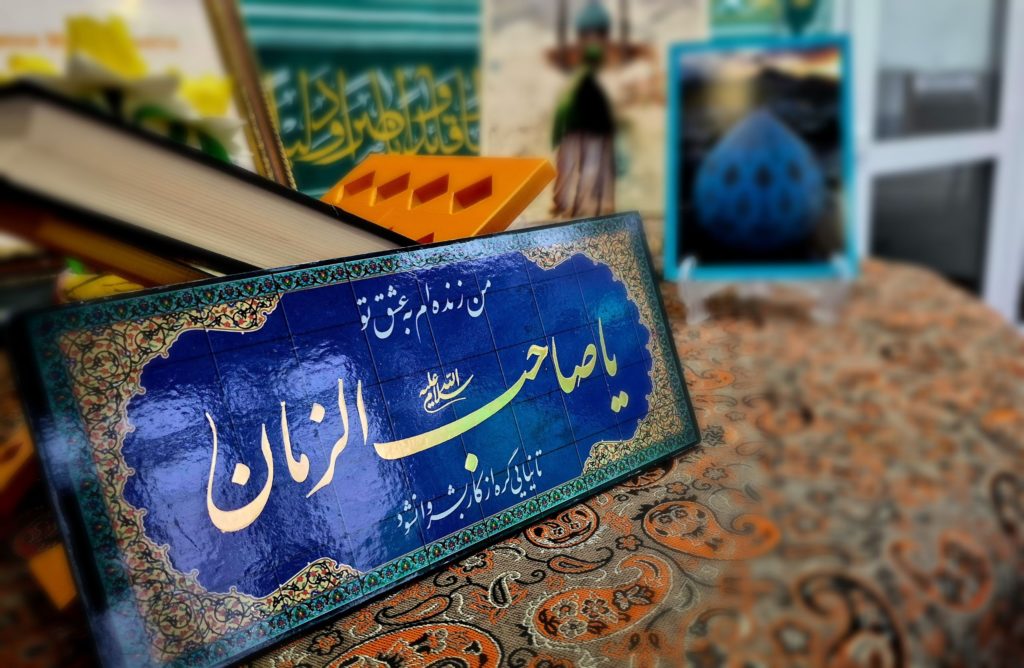 من زنده ام به عشق تو
یا صاحب الزمان
علیه السلام
تا نیایی گره از کار بشر وا نشود